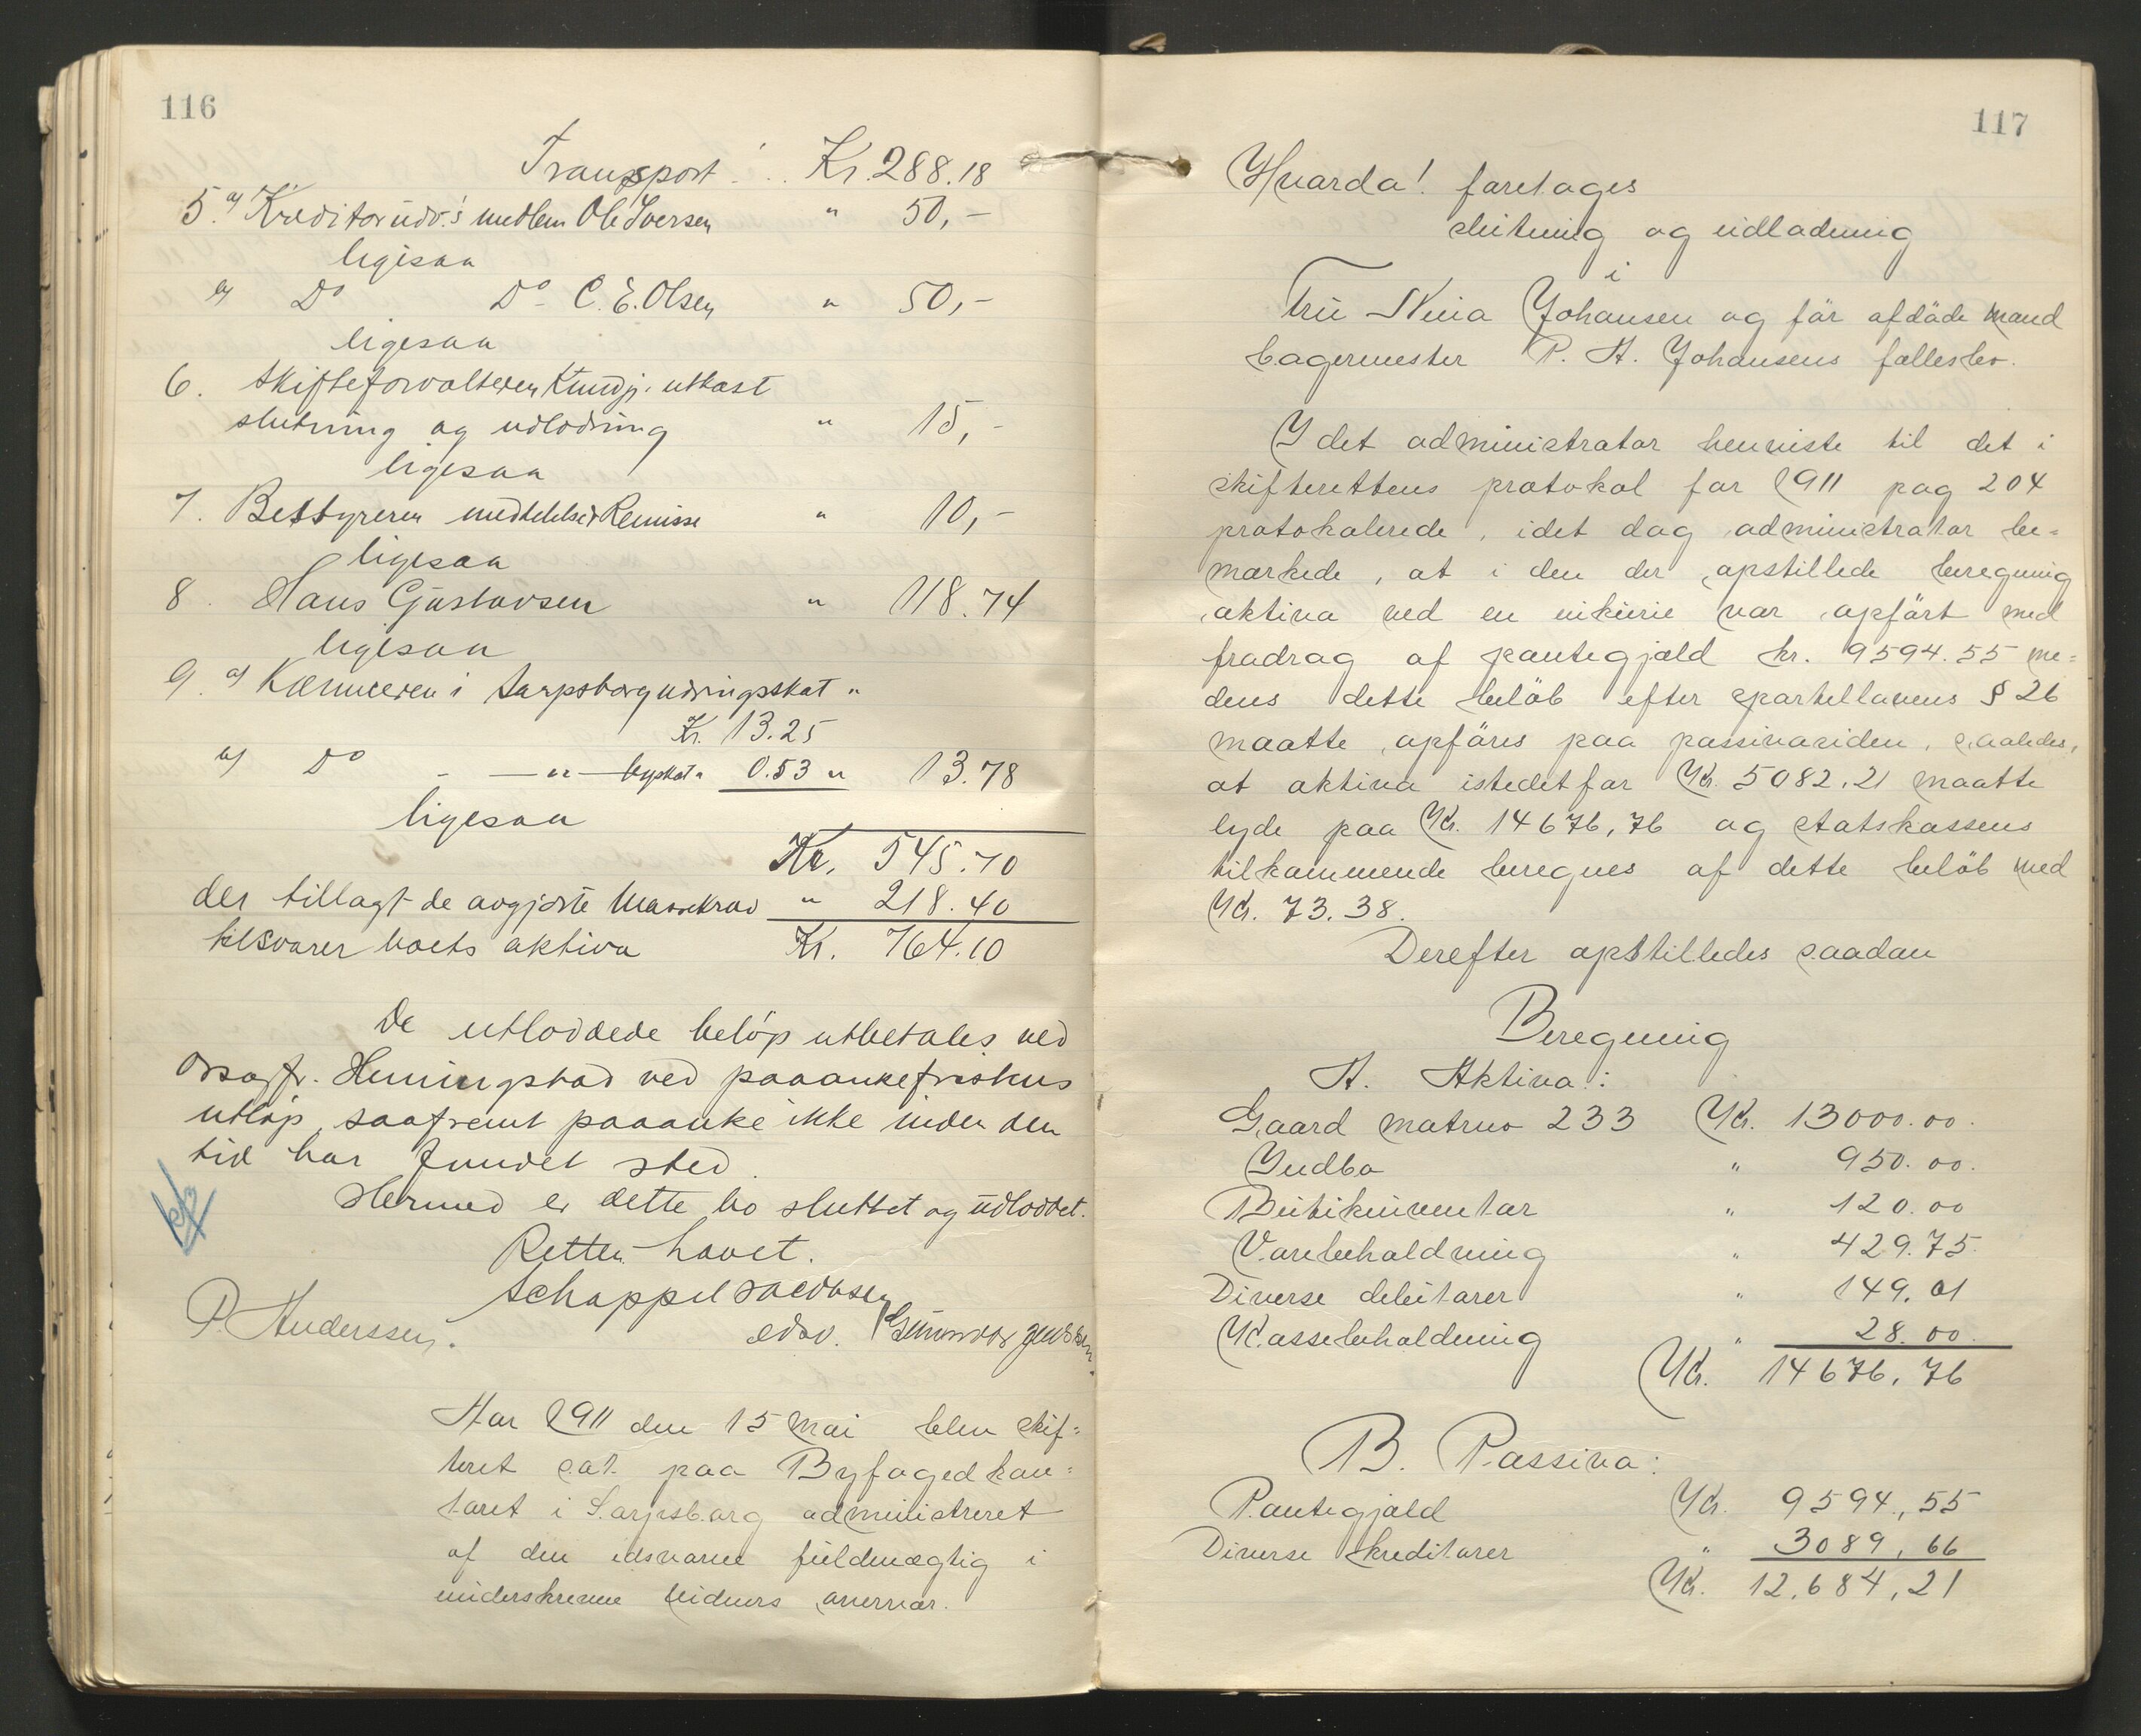 116
Transport . . . Kr. 288.18
5. a) Kreditorudv.'s medlem Ole Iversen " 50,-
ligesaa
b) Do Do - C. E. Olsen " 50,-
ligesaa
6. Skifteforvalteren Kundgj. utkast
slutning og udlodning " 15,-
ligesaa
7. Bestyreren meddelelser Remisse " 10,-
ligesaa
8. Hans Gustavsen " 118.74
ligesaa
9. a) Kæmneren i Sarpsborg næringsskat "
Kr. 13.25
b) Do - —"— byskat " 0.53 " 13.78
ligesaa
Kr. 545.70
der tillagt de avgjorte Massekrav " 218.40
tilsvarer boets aktiva Kr. 764.10
De utloddede beløp utbetales ved
Osagfr. Henningstad ved paaankefristens
utløp, saafremt paaanke ikke inden den
tid har fundet sted.
Hermed er dette bo sluttet og udloddet.
Retten hævet.
Schappel Jacobsen
P. Anderssen. edsv. Gunvor Jensen.
Aar 1911 den 15 mai blev skif=
teret sat paa Byfogedkon=
toret i Sarpsborg administreret
af den edsvorne fuldmægtig i
underskrevne vidners overvær.
117
Hvorda! foretoges
slutning og udlodning
i
Fru Nina Johansen og før afdøde mand
bagermester P. A. Johansens fællesbo.
Idet administrator henviste til det i
skifterettens protokol for 1911 pag 204
protokolerede, idet dog administrator be=
mærkede, at i den der opstillede beregning
aktiva ved en inkurie var opført med
fradrag af pantegjæld kr. 9594.55 me=
dens dette beløb efter sportellovens § 26
maatte opføres paa passivasiden, saaledes,
at aktiva istedetfor Kr. 5082,21 maatte
lyde paa Kr. 14676,76 og statskassens
tilkommende beregnes af dette beløb med
Kr. 73.38.
Derefter opstilledes saadan
Beregning
A. Aktiva:
Gaard matrno 233 Kr. 13000.00.
Indbo " 950.00.
Butikinventar " 120.00
Varebeholdning " 429.75.
Diverse debitorer " 149.01
Kassebeholdning " 28.00.
Kr. 14676,76
B. Passiva:
Pantegjæld Kr. 9594,55
Diverse kreditorer " 3089,66
Kr. 12.684,21